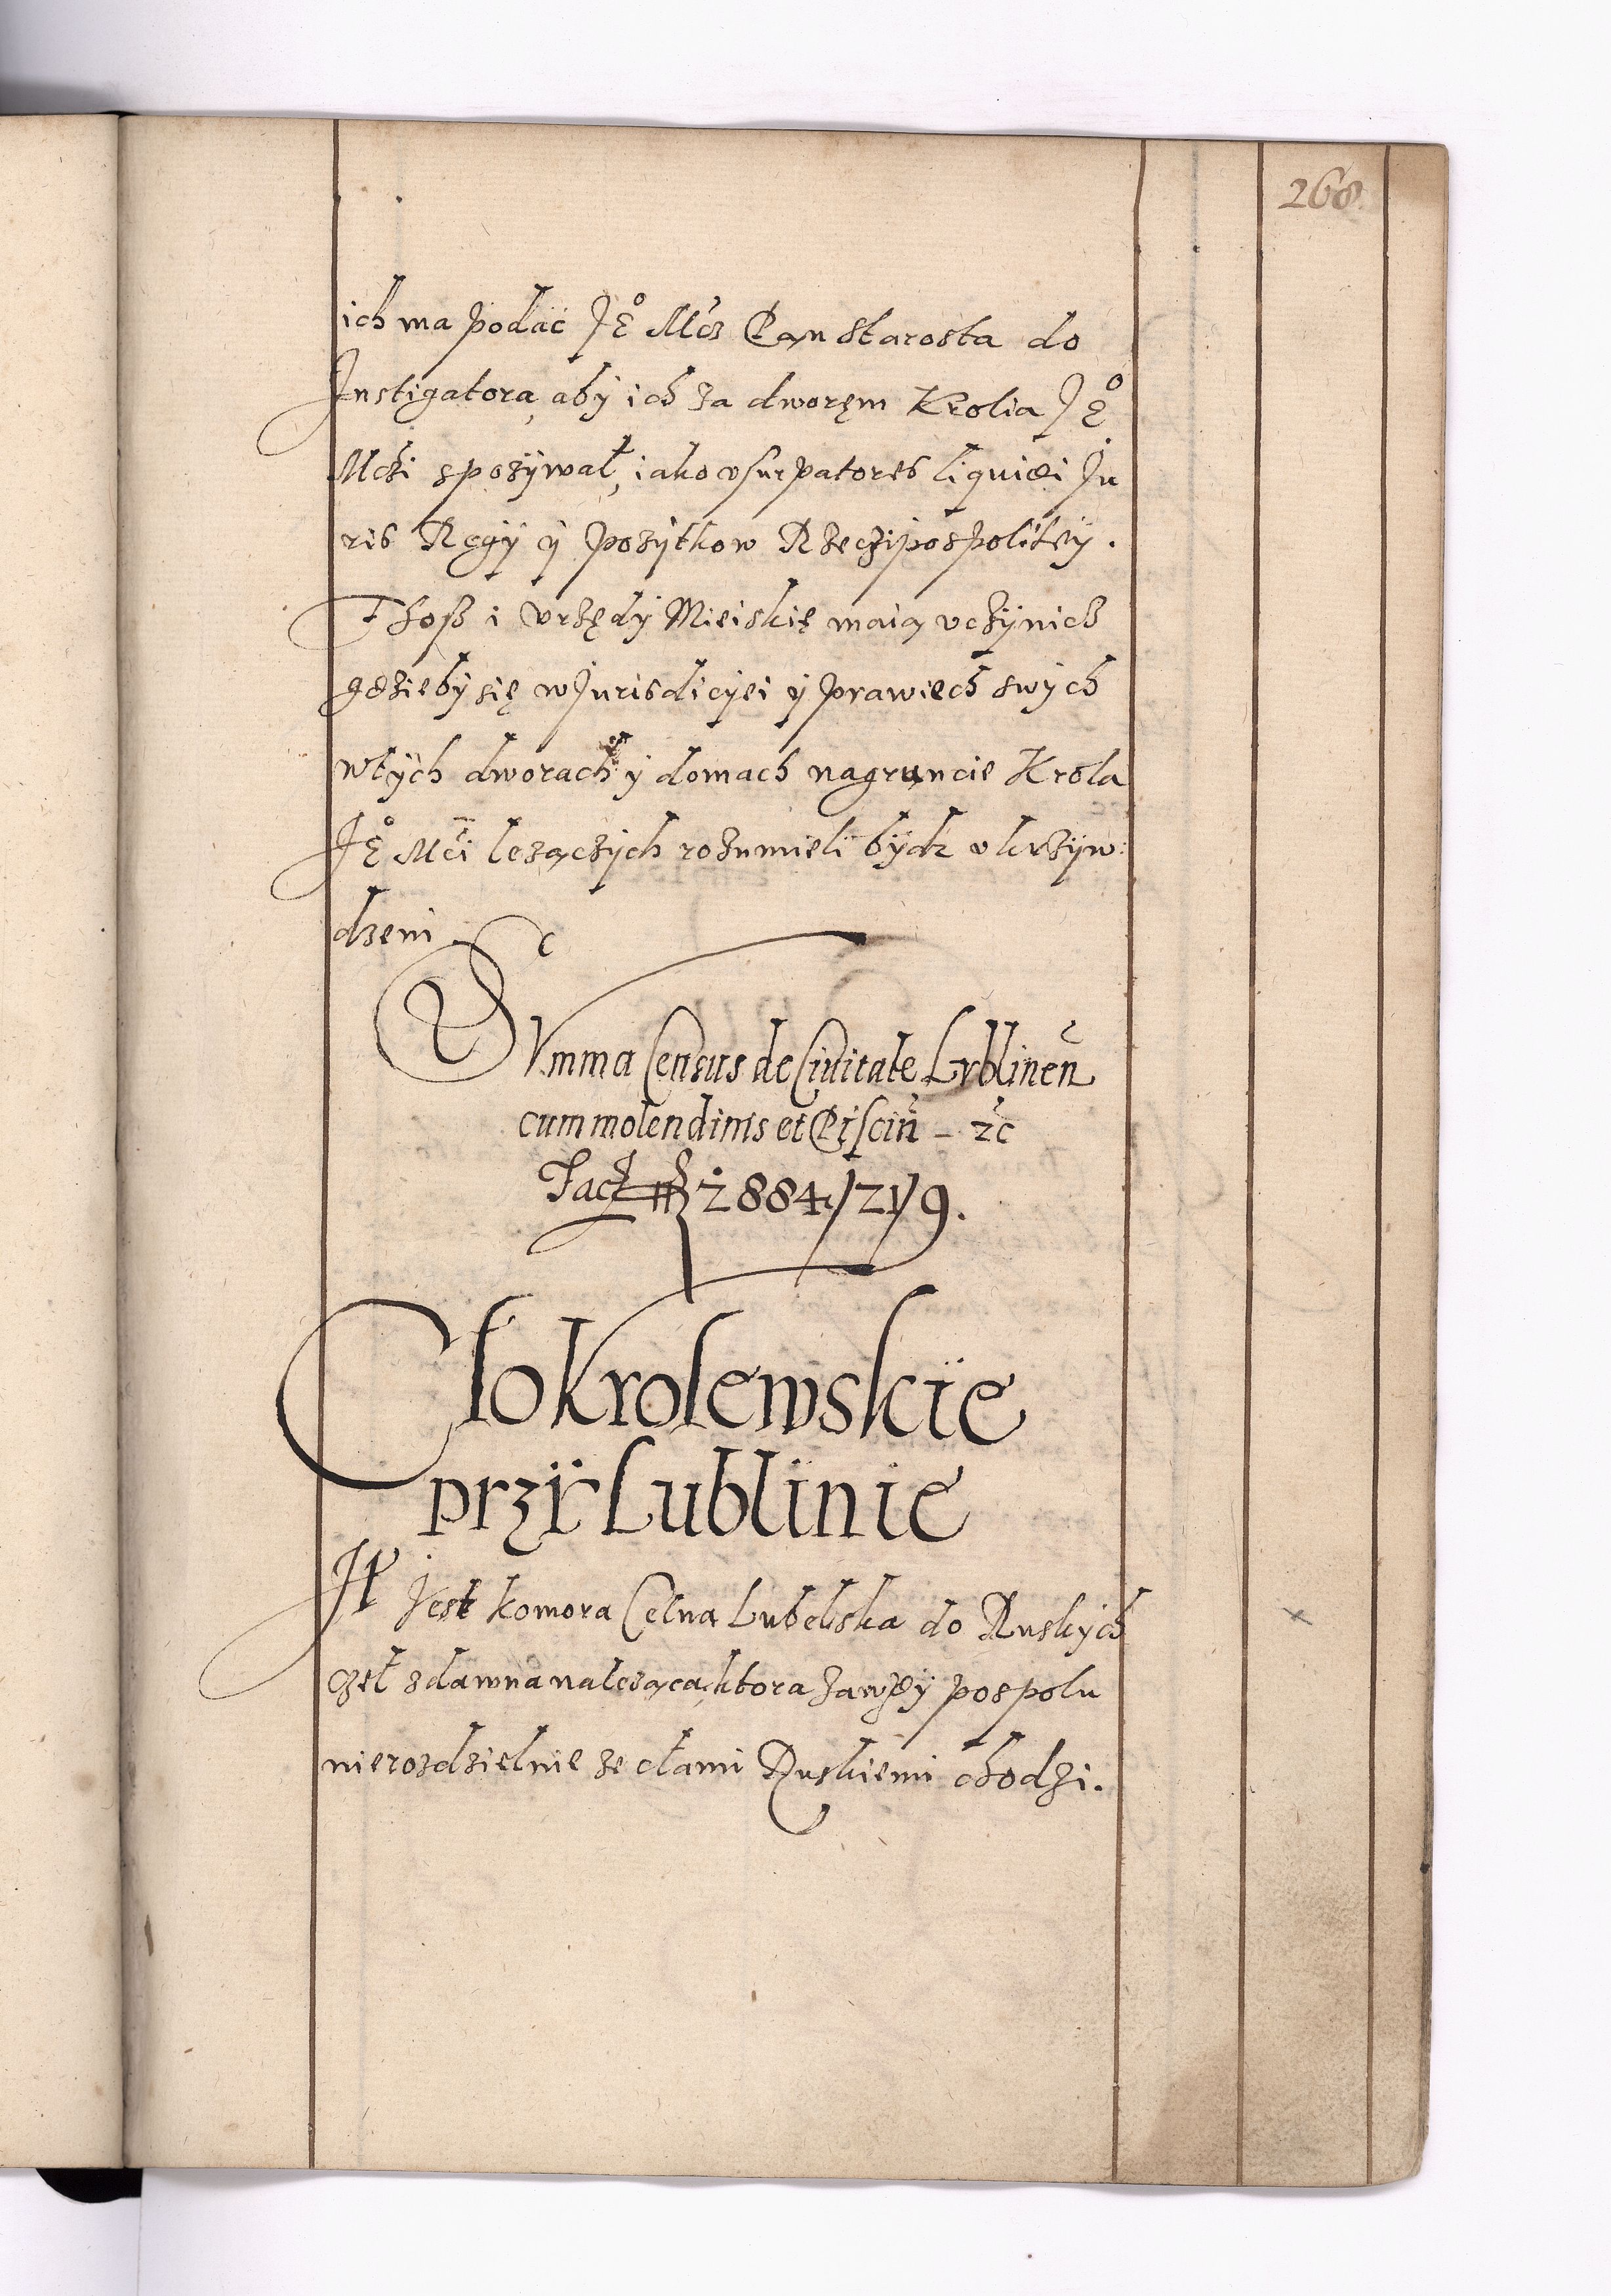 268
ich ma podać Jᵒ Mćz Pan Starosta do
Instigatora, aby ich za dworęm Krolia Jᵒ
Mczi spozÿwał, iako vsurpatores liquidi Ju
ris Regÿ ÿ pozÿtkow Rzeczÿpospolitey.
Thosz i vrzędÿ Mieiskię maią vczÿnicz
gdzieby się w Jurisdicÿei ÿ prawiech swÿch
wtÿch dworach ÿ domach nagruncie Krola
Jᵒ Mći lezączÿch rozumieli bÿdz vkrzÿw:
dzeni
Svmma Census de Ciuitate Lvblineñ
cum molendinis et Pisciñ – zc
Facÿ 2884/21/9.
Cło Krolewskie
przÿ Lublinie
Jt Jest komora Celna Lubelska do Ruskÿch
czeł zdawna nalezącą, ktora zawzdÿ pospolu
nierozdzielnie ze cłami Ruskiemi chodzi.